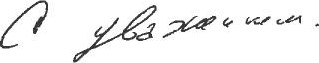 С уважением.